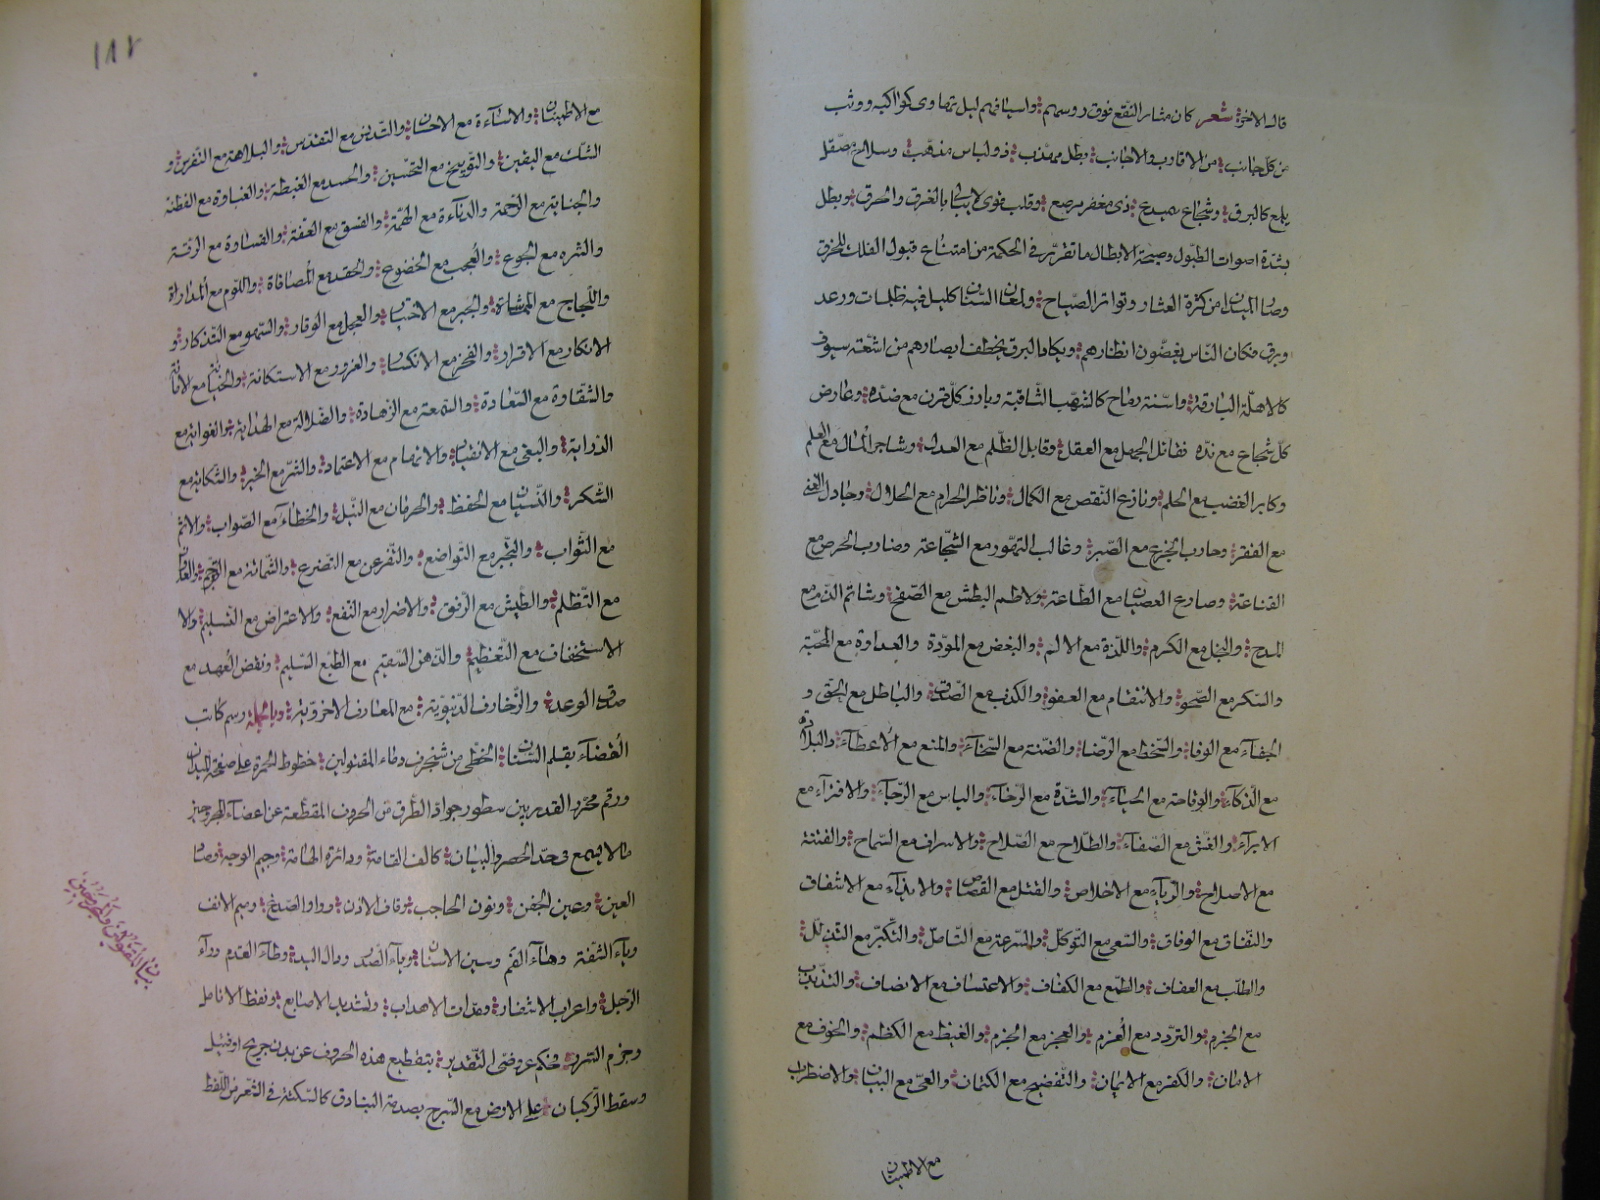 قال الاخر شعر كان مثار النقع فوق روسهم واسيافهم ليل تهاوى كواكبه ووثب
من كل جانب من الاقارب والاجانب بطل مهذب ذو لباس مذهب وسلاح مصقل
يلمع كالبرق وشجاع سميدع ذى مغفر مرصع وقلب قوى بالغرق والحرق وبطل
بشدة اصوات الطبول وصيحة الابطال ما تقرر فى الحكمة من امتناع قبول الفلك للخرق
وصار الميدان من كثرة العشار وتواتر الصياح ولمعان السنان كليل فيه ظلمات ورعد
وبرق فكان الناس يغضون انظارهم ويكاد البرق يخطف ابصارهم من اشعة سيوف
كالاهلة البارقة واسنة رماح كالشهب الثاقبة وبارز كل قرن مع ضده وعارض
كل شجاع مع نده فقاتل الجهل مع العقل وقابل الظلم مع العدل وشاجر المال مع العلم
وكابر الغضب مع الحلم ونازع النقص مع الكمال وناظر الحرام مع الحلال وجادل الغنى
مع الفقر وحارب الجزع مع الصبر وغالب التهور مع الشجاعة وضارب الحرص مع
القناعة وصارع العصيان مع الطاعة ولاطم البطش مع الصفح وشاتم الذم مع
المدح والبخل مع الكرم واللذة مع الالم والبغض مع المودة والعداوة مع المحبة
والسكر مع الصحو والانتقام مع العفو والكذب مع الصدق والباطل مع الحق و
الجفاء مع الوفا والسخط مع الرضا والضنة مع السخاء والمنع مع الاعطاء والبلادة
مع الذكاء والوقاحة مع الحياء والشدة مع الرخاء والياس مع الرجاء والافتراء مع
الابراء والغش مع الصفاء والطلاح مع الصلاح والاسراف مع السماح والفتنة
مع الاصلاح والرياء مع الاخلاص والقتل مع القصاص والايذاء مع الاشفاق
والنفاق مع الوفاق والسعى مع التوكل والسرعة مع التامل والتكبر مع التذلل
والطلب مع العفاف والطمع مع الكفاف والاعتساف مع الانصاف والتذبذب
مع الجزم والتردد مع العزم والعجز مع الحزم والغيظ مع الكظم والخوف مع
الامان والكفر مع الايمان والتفضيح مع الكتمان والعى مع البيان والاضطراب
مع الاطمينان
مع الاطمينان والاساءة مع الاحسان والتدنس مع التقدس والبلاهة مع التفرس و
الشك مع اليقين والتوبيخ مع التحسين والحسد مع الغبطة والغباوة مع الفطنة
والجناية مع الرحمة والدناءة مع الهمة والفسق مع العفة والقساوة مع الرقة
والشره مع الجوع والعجب مع الخضوع والحقد مع المصافاة واللوم مع المداراة
واللجاج مع المماشاة والجبر مع الاختيار والعجل مع الوقار والسهو مع التذكار و
الانكار مع الاقرار والفخر مع الانكسار والغرور مع الاستكانة والخيانة مع الامانة
والشقاوة مع السعادة والسمعة مع الزهادة والضلالة مع الهداية والغواية مع
الدراية والبغى مع الانقياد والاتهام مع الاعتماد والشر مع الخير والشكاية مع
الشكر والنسيان مع الحفظ والحرمان مع النيل والخطاء مع الصواب والاثم
مع الثواب والتجبر مع التواضع والتفرعن مع التضرع والشماتة مع الترحم
مع التظلم والطيش مع الرفق والاضرار مع النفع والاعتراض مع التسليم والا
الاستخفاف مع التعظيم والذهن السقيم مع الطبع السليم ونقض العهد مع
صدق الوعد والزخارف الدنيوية مع المعارف الاخروية وبالجملة رسم كاتب
القضاء بقلم السنان الخطى من شنجرف دماء المقتولين خطوط الحمرة على صفحة الميدان
ورقم محرر القدر بين سطور جواد الطرق من الحروف المقطعة عن اعضاء المجروحين
ما لا يسمع فى حد الحصر والبيان كالف القامة ودائرة الهامة وجيم الوجه وصاد
العين وعين الجفن ونون الحاجب وقاف الاذن وواو الصدغ وميم الانف
وباء الشفة وهاء الفم وسين الاسنان وياء الصدر ودال اليد وطاء القدم وراء
الرجل واعراب الانتصار ومدات الاهداب وتشديد الاصابع ونقط الانامل
وجزم السرة فحكم عروضى التقدير بتقطيع هذه الحروف عن بدن جريح او قتيل
وسقط الركبان على الارض مع السرج بصدمة البنادق كالسكتة فى الشعر من اللفظ
بيان المقتولين والمجروحين
١٨٢